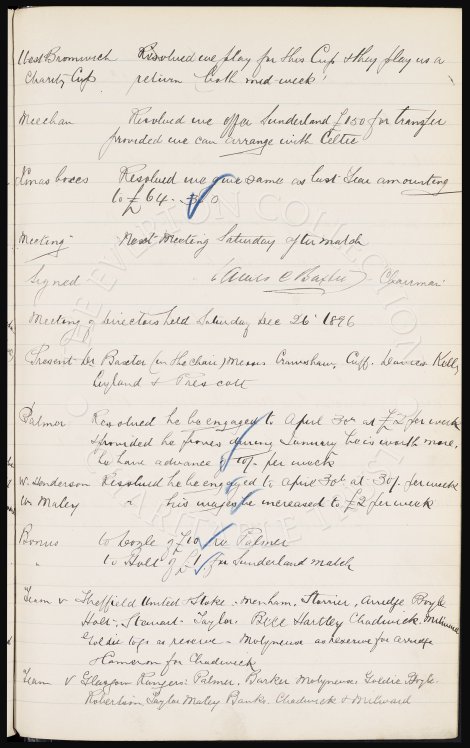 West Bromwich Resolved we play for this Cup & they play us a
Charity Cup return both mid-week.
Meechan Resolved we offer Sunderland £150 for transfer
provided we can arrange with Celtic
Xmas boxes Resolved we give same as last Year amounting
to £64. 0
Meeting Next Meeting Saturday after match
Signed James C Baxter Chairman
Meeting of Directors held Saturday Dec 26 1896
Present Dr Baxter (in the chair) Messrs Crawshaw, Cuff, Davies Kelly
Leyland & Prescott
Palmer Resolved he be engaged to April 30th at £2 per week
& provided he proves during January he is worth more,
to have advance of 10/- per week
W. Henderson Resolved he be engaged to April 30th at 30/- per week
Wm Maley " his wages be increased to £2 per week
Bonus to Boyle of £10 re Palmer
" to Holt of £1 for Sunderland match
Team v Sheffield United Stoke - Menham, Storrier, Arridge Boyle
Holt, Stewart - Taylor. Bell Hartley Chadwick. Milward
Goldie to go as reserve - Molyneux as reserve for Arridge
& Cameron for Chadwick
Team v Glasgow Rangers: Palmer, Barker Molyneux Goldie Boyle
Robertson Taylor Maley Banks Chadwick & Milward
THE EVERTON COLLECTION
CHARITABLE TRUST